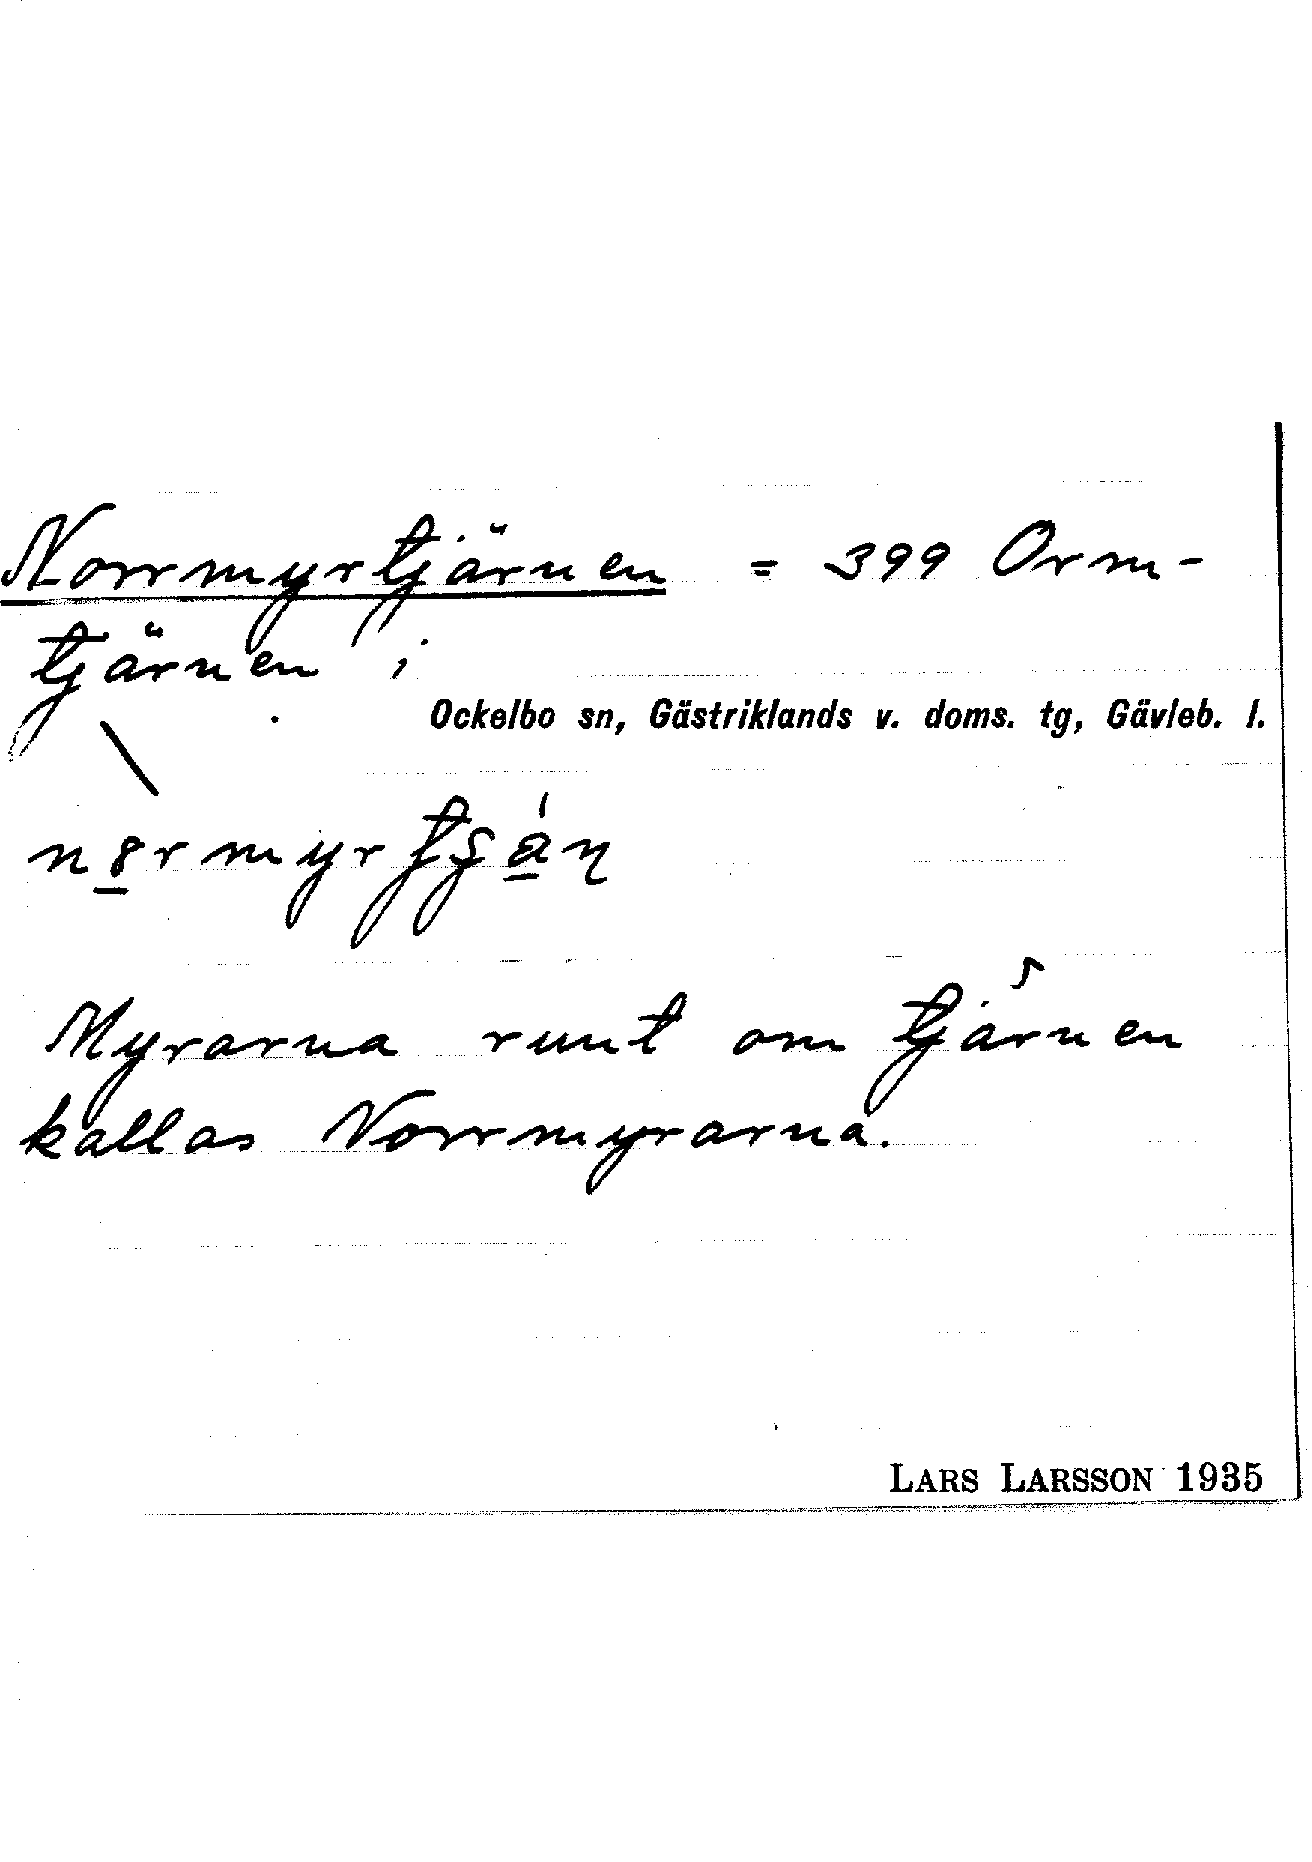 Norrmyrtjärnen = 399 Orm-
tjärnen i
Ockelbo sn, Gästriklands v. doms. tg, Gävleb. l.
Myrarna runt om tjärnen
kallas Norrmyrarna.
LARS LARSSON 1935